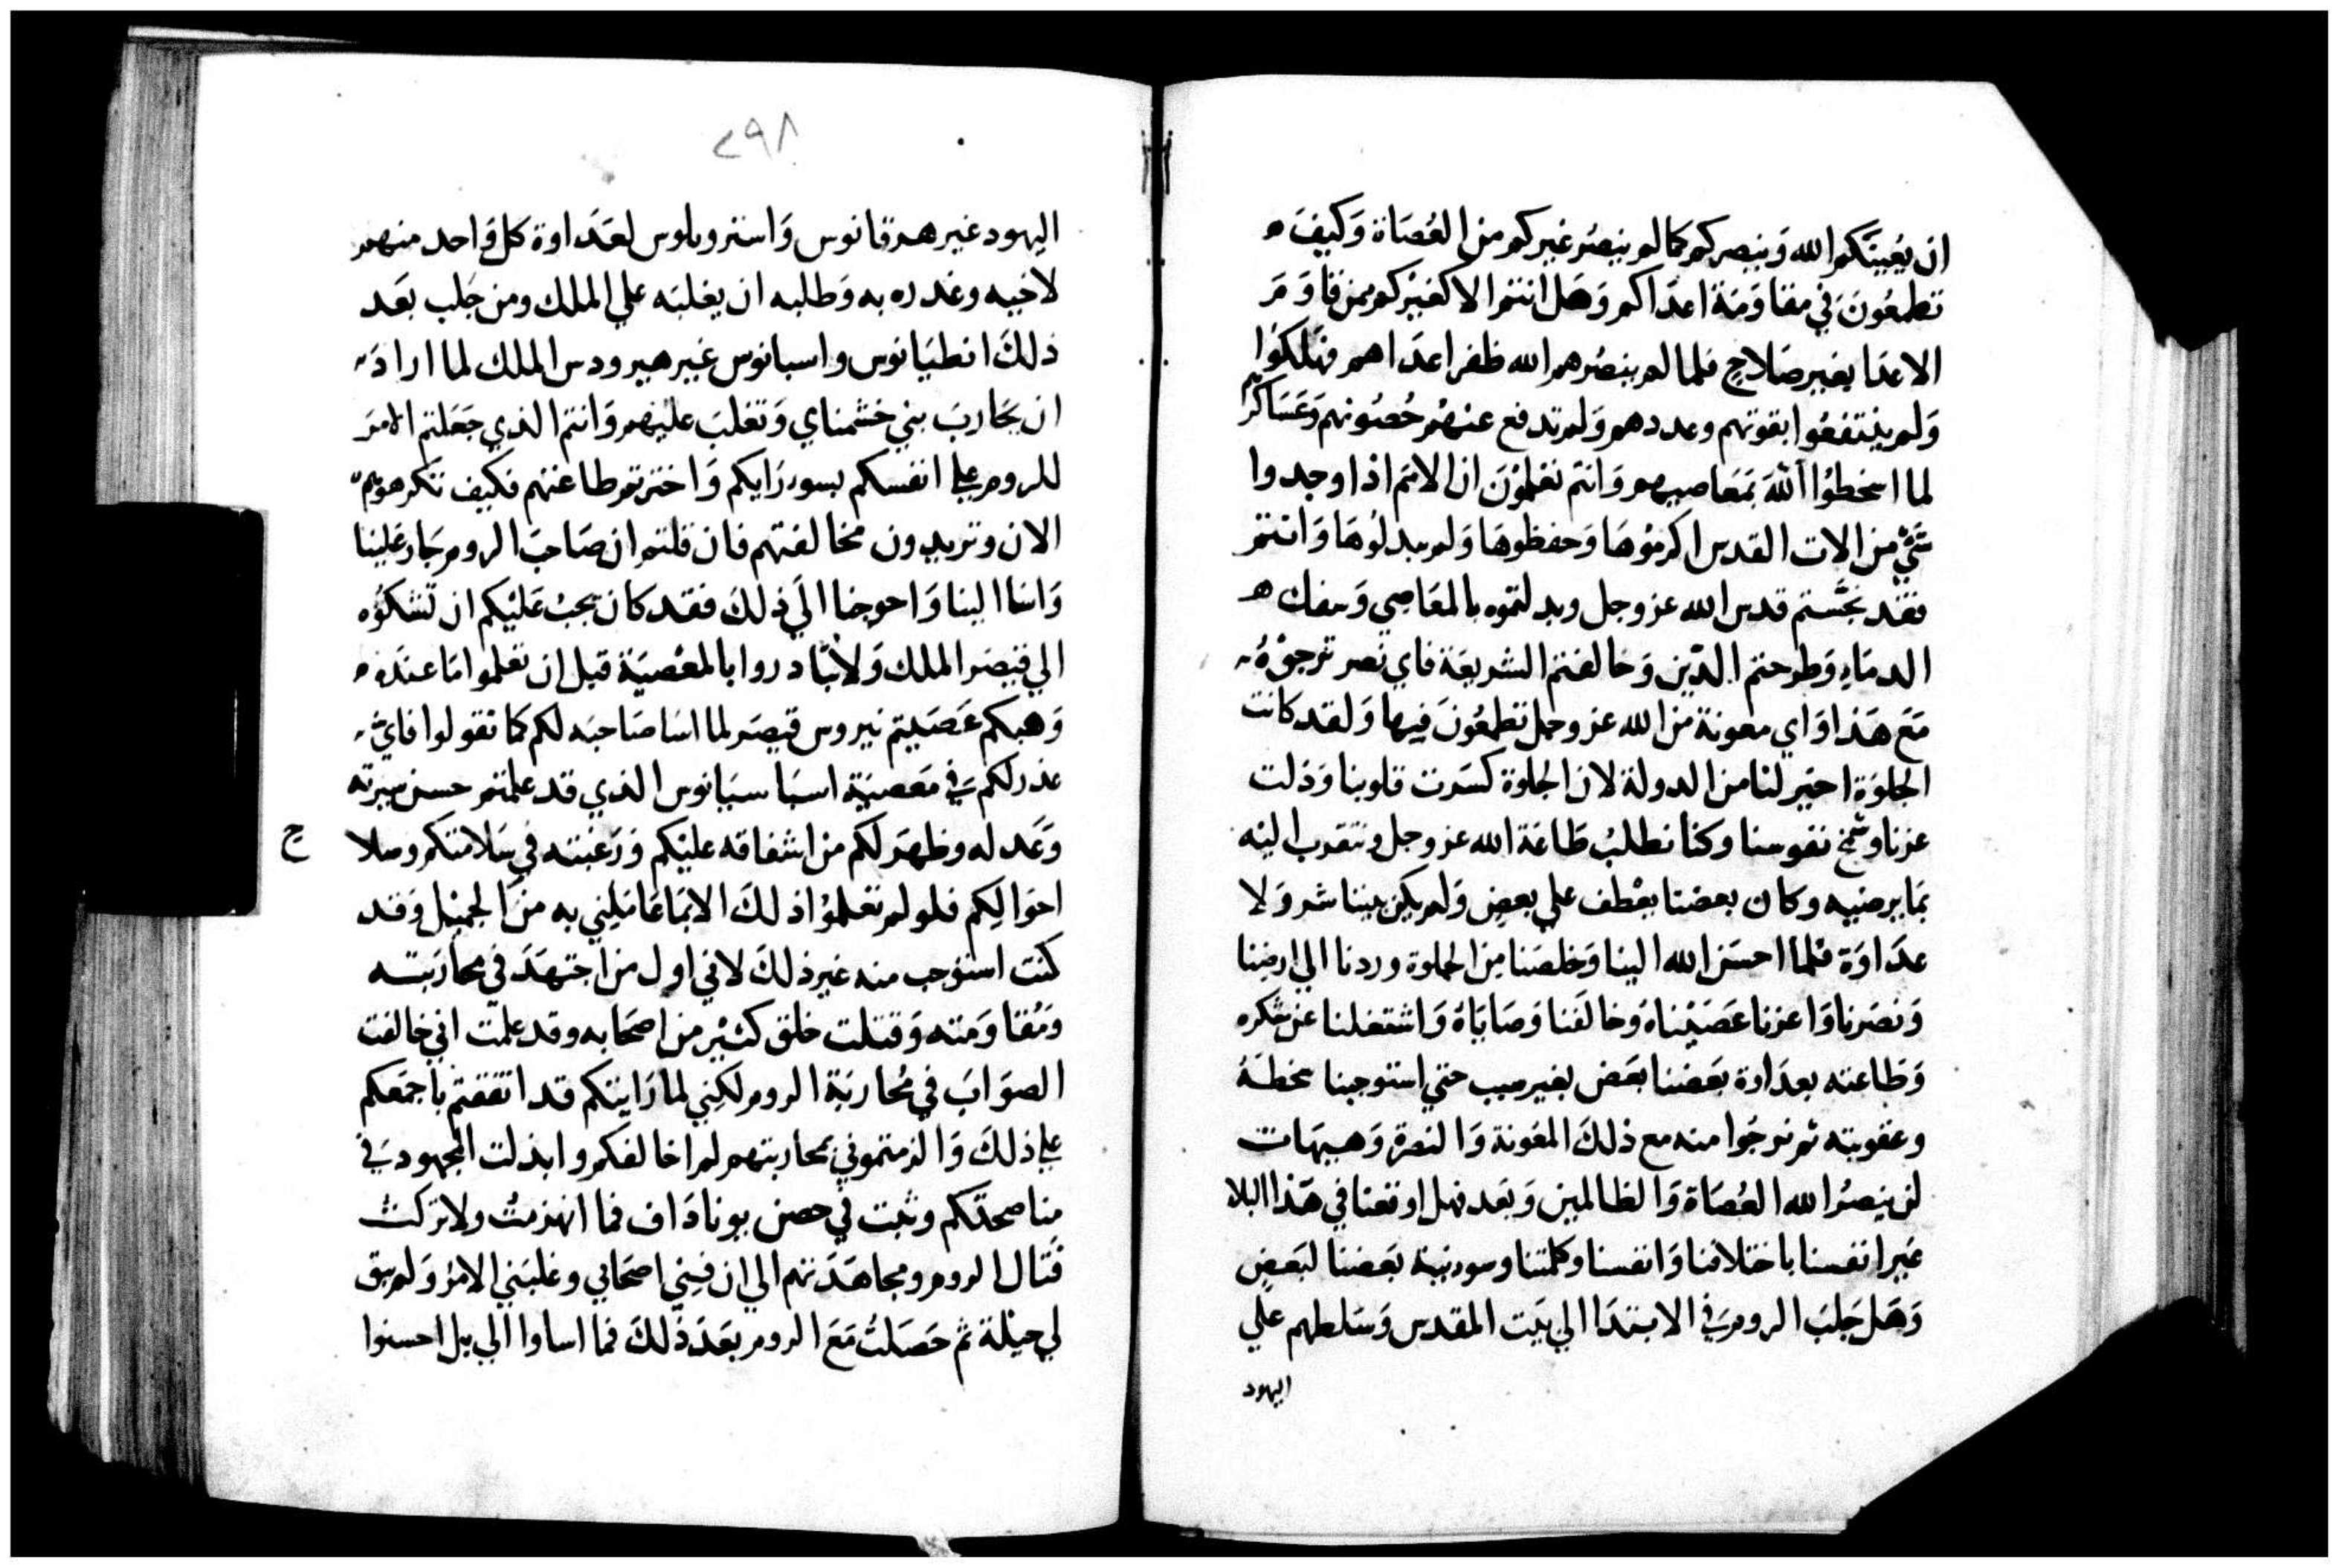 ان يُعينَكم الله وَينصركم كما لم ينصُر غيركم من العُصَاة وَكيفَ
تطمعُونَ في مقاوَمَة اعدَاكم وَهَل انتم الا كغيْركم ممن قاوَمَ
الاعدَا بغير صَلاحٍ فلما لم ينصُرهم الله ظفر اعدَاهم فهَلكوُا
وَلم ينتفعُوا بقوتهم وعددهم وَلم تدفع عنهُم حُصُونهم وَعَسَاكرهم
لما اسخطوُا اللهَ بمَعَاصيهم وَانتم تعلمُونَ ان الامَم اذا وجدوا
شَيْ من الات القدس اكرموُهَا وَحفظوهَا وَلم يبدلُوهَا وَانتم
فقد نجَّستم قدس الله عز وجل وبدلتموه بالمعَاصِي وَسفك
الدمَاءِ وَطرحتم الدّين وَخالفتم الشريعَة فاي نَصر ترجوْهُ
مَعَ هَذا وَاي معونة من الله عز وجل تطمعُونَ فيها وَلقد كانت
الجلوَة اخيَر لنا من الدولة لان الجلوة كسَرت قلوبنا وَذلت
عزنا وشمخ نفوسنا وكنا نطلبُ طَاعَة الله عز وجل ونتقرب اليْه
بمَا يرضيه وكان بعضنا يعْطف علي بعضٍ وَلم يكن بيننا شر وَلا
عدَاوَة فلما احسَن الله الينا وَخلصَنا مِن الجلوة وردنا الي ارضِنا
وَنصَرنا وَاعزنا عَصَيْناهُ وَخالَفنا وَصَايَاهُ وَاشتغلنا عَن شكره
وَطَاعته بعدَاوة بَعضنا بعَض بغير سبب حتي استوجبنا سخطهُ
وعقوبته ثم نرجُوا منه مع ذلكَ المعُونة وَالنصرة وَهيهَات
لن ينصُر الله العُصَاة وَالظالمين وَبَعد فهل اوقعنا في هَذا البلا
غير انفسنا باختلافنا وَانفسنا وكلمتنا وسو نية بَعضنا لبَعضٍ
وَهَل جَلبَ الروم في الابتدَا الي بَيت المقدس وَسَلطهم عَلي
اليهود
٢٩٨
اليهود غير هرقانوس وَاسترولوس لعَدَاوة كل وَاحد منهم
لاخيه وغدره به وَطلبه ان يغلبَه علي الملك ومن جَلب بعَد
ذلكَ انطيَانوس واسبانوس غير هيرودس الملك لما ارادَ
ان يحَاربَ بني خشمناي وَتغلبَ عليهم وَانتم الذي جَعَلتم الامَر
للروم علي انفسكم بسور رَايكم وَاخترتم طاعتهم فكيف تنكرهوهم
الان وتريدون مخالفتهم فان قلتم ان صَاحبَ الروم جَار عَلينا
وَاسَا الينا وَاحوجنا الَي ذلكَ فقد كان يجبْ عَليْكم ان تشكوُه
الي قيصَر الملك وَلا تبَادروا بالمعْصيَة قبل ان تعلموا مَا عندَه
وَهبكم عَصَيتم نيروس قيصَر لما اسَا صَاحبَه لكم كما تقولوا فايّ
عذر لكم في مَعصيَة اسبَاسيَانوس الذي قد علمتم حسن سيرته
وَعَدله وظهَر لكم من اشفاقه عليْكم وَرَغبته في سَلامتكم وصلا
ح
احوَالِكم فلو لم تعْلموُا ذلكَ الا بمَا عَامَلِني به منَ الجميْل وَقد
كنت استوْجب منه غير ذلكَ لاني اول من اجتهَدَ في محارَبته
وَمُقاوَمته وَقتلت خلق كثيْر من اصحَابه وقد علمت اني خالفت
الصوَابَ في مُحاربَة الروم لكِني لما رَايتكم قد اتفقتم باجمَعكم
علي ذلكَ وَالزمتموني بمحاربتهم لم اخالفكم وابذلت المجهود في
مناصحتكم وثبت في حصن يوناداف فما انهزمتُ ولا تركت
قتال الروم ومجاهَدَتهم الي ان فنِي اصحَابي وغلبَني الامرُ وَلم يبق
لي حيْلة ثم حَصَلتُ مَعَ الروم بعَدَ ذلكَ فما اساوا الي بل احسنوا